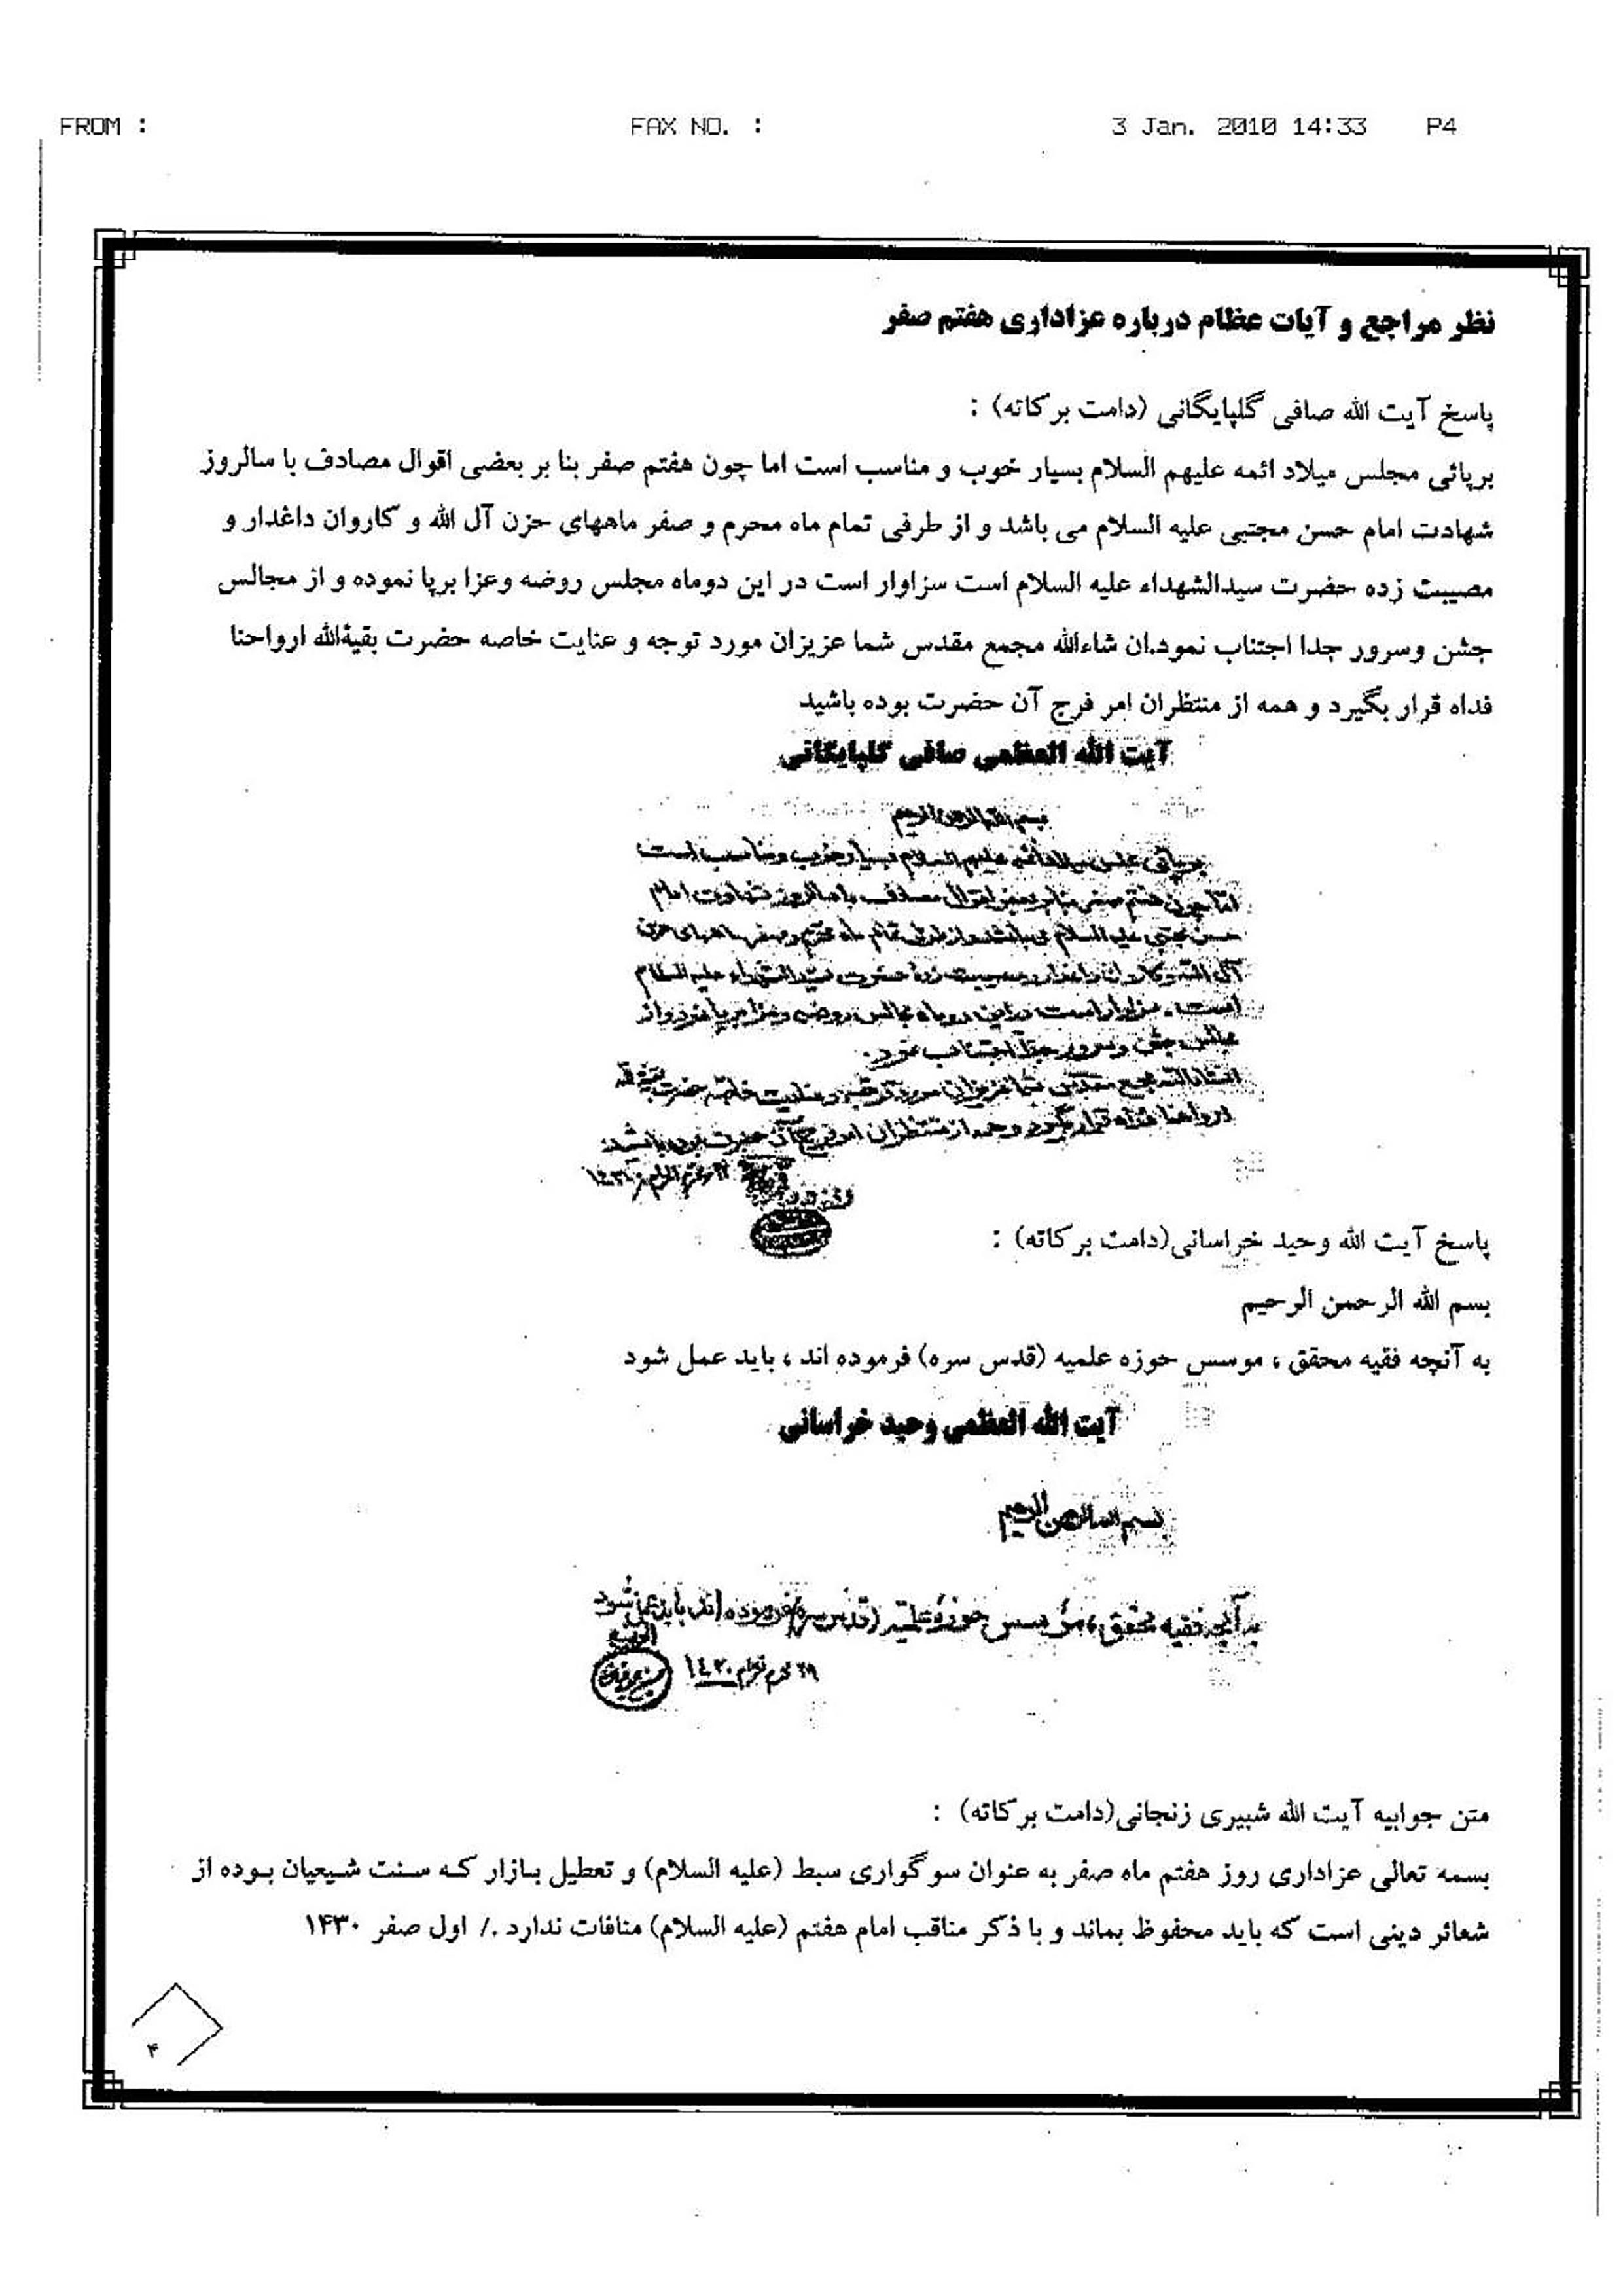 FROM : FAX NO. : 3 Jan. 2010 14:33 P4
نظر مراجع و آیات عظام درباره عزاداری هفتم صفر
پاسخ آیت الله صافی گلپایگانی (دامت برکاته) :
برپائی مجلس میلاد ائمه علیهم السلام بسیار خوب و مناسب است اما چون هفتم صفر بنا بر بعضی اقوال مصادف با سالروز
شهادت امام حسن مجتبی علیه السلام می باشد و از طرفی تمام ماه محرم و صفر ماههای حزن آل الله و کاروان داغدار و
مصیبت زده حضرت سیدالشهداء علیه السلام است سزاوار است در این دوماه مجلس روضه وعزا برپا نموده و از مجالس
جشن وسرور جدا اجتناب نمود.ان شاءالله مجمع مقدس شما عزیزان مورد توجه و عنایت خاصه حضرت بقیةالله ارواحنا
فداه قرار بگیرد و همه از منتظران امر فرج آن حضرت بوده باشید
آیت الله العظمی صافی گلپایگانی
بسم الله الرحمن الرحیم
برپائی مجلس میلاد ائمه علیهم السلام بسیار خوب و مناسب است
اما چون هفتم صفر بنا بر بعض اقوال مصادف با سالروز شهادت امام
حسن مجتبی علیه السلام می باشد و از طرفی تمام ماه محرم و صفر ماههای حزن
آل الله و کاروان داغدار و مصیبت زده حضرت سیدالشهداء علیه السلام
است، سزاوار است در این دو ماه مجالس روضه و عزا برپا نمود و از
مجالس جشن و سرور جداً اجتناب نمود.
انشاءالله مجمع مقدس شما عزیزان مورد توجه و عنایت خاصه حضرت بقیة الله
ارواحنا فداه قرار بگیرد و همه از منتظران امر فرج آن حضرت بوده باشید
پاسخ آیت الله وحید خراسانی(دامت برکاته) :
بسم الله الرحمن الرحیم
به آنچه فقیه محقق ، موسس حوزه علمیه (قدس سره) فرموده اند ، باید عمل شود
آیت الله العظمی وحید خراسانی
بسم الله الرحمن الرحیم
به آنچه فقیه محقق، مؤسس حوزه علمیه (قدس سره) فرموده اند، باید عمل شود
۲۹ محرم الحرام ۱۴۳۰
متن جوابیه آیت الله شبیری زنجانی(دامت برکاته) :
بسمه تعالی عزاداری روز هفتم ماه صفر به عنوان سوگواری سبط (علیه السلام) و تعطیل بازار که سنت شیعیان بوده از
شعائر دینی است که باید محفوظ بماند و با ذکر مناقب امام هفتم (علیه السلام) منافات ندارد ./ اول صفر ۱۴۳۰
۴